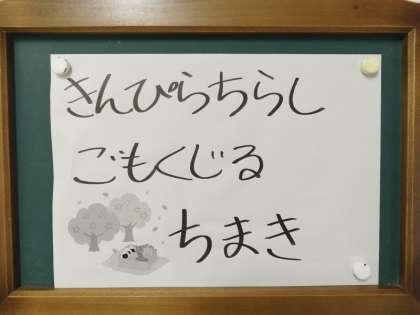 きんぴらちらし
ごもくじる
ちまき